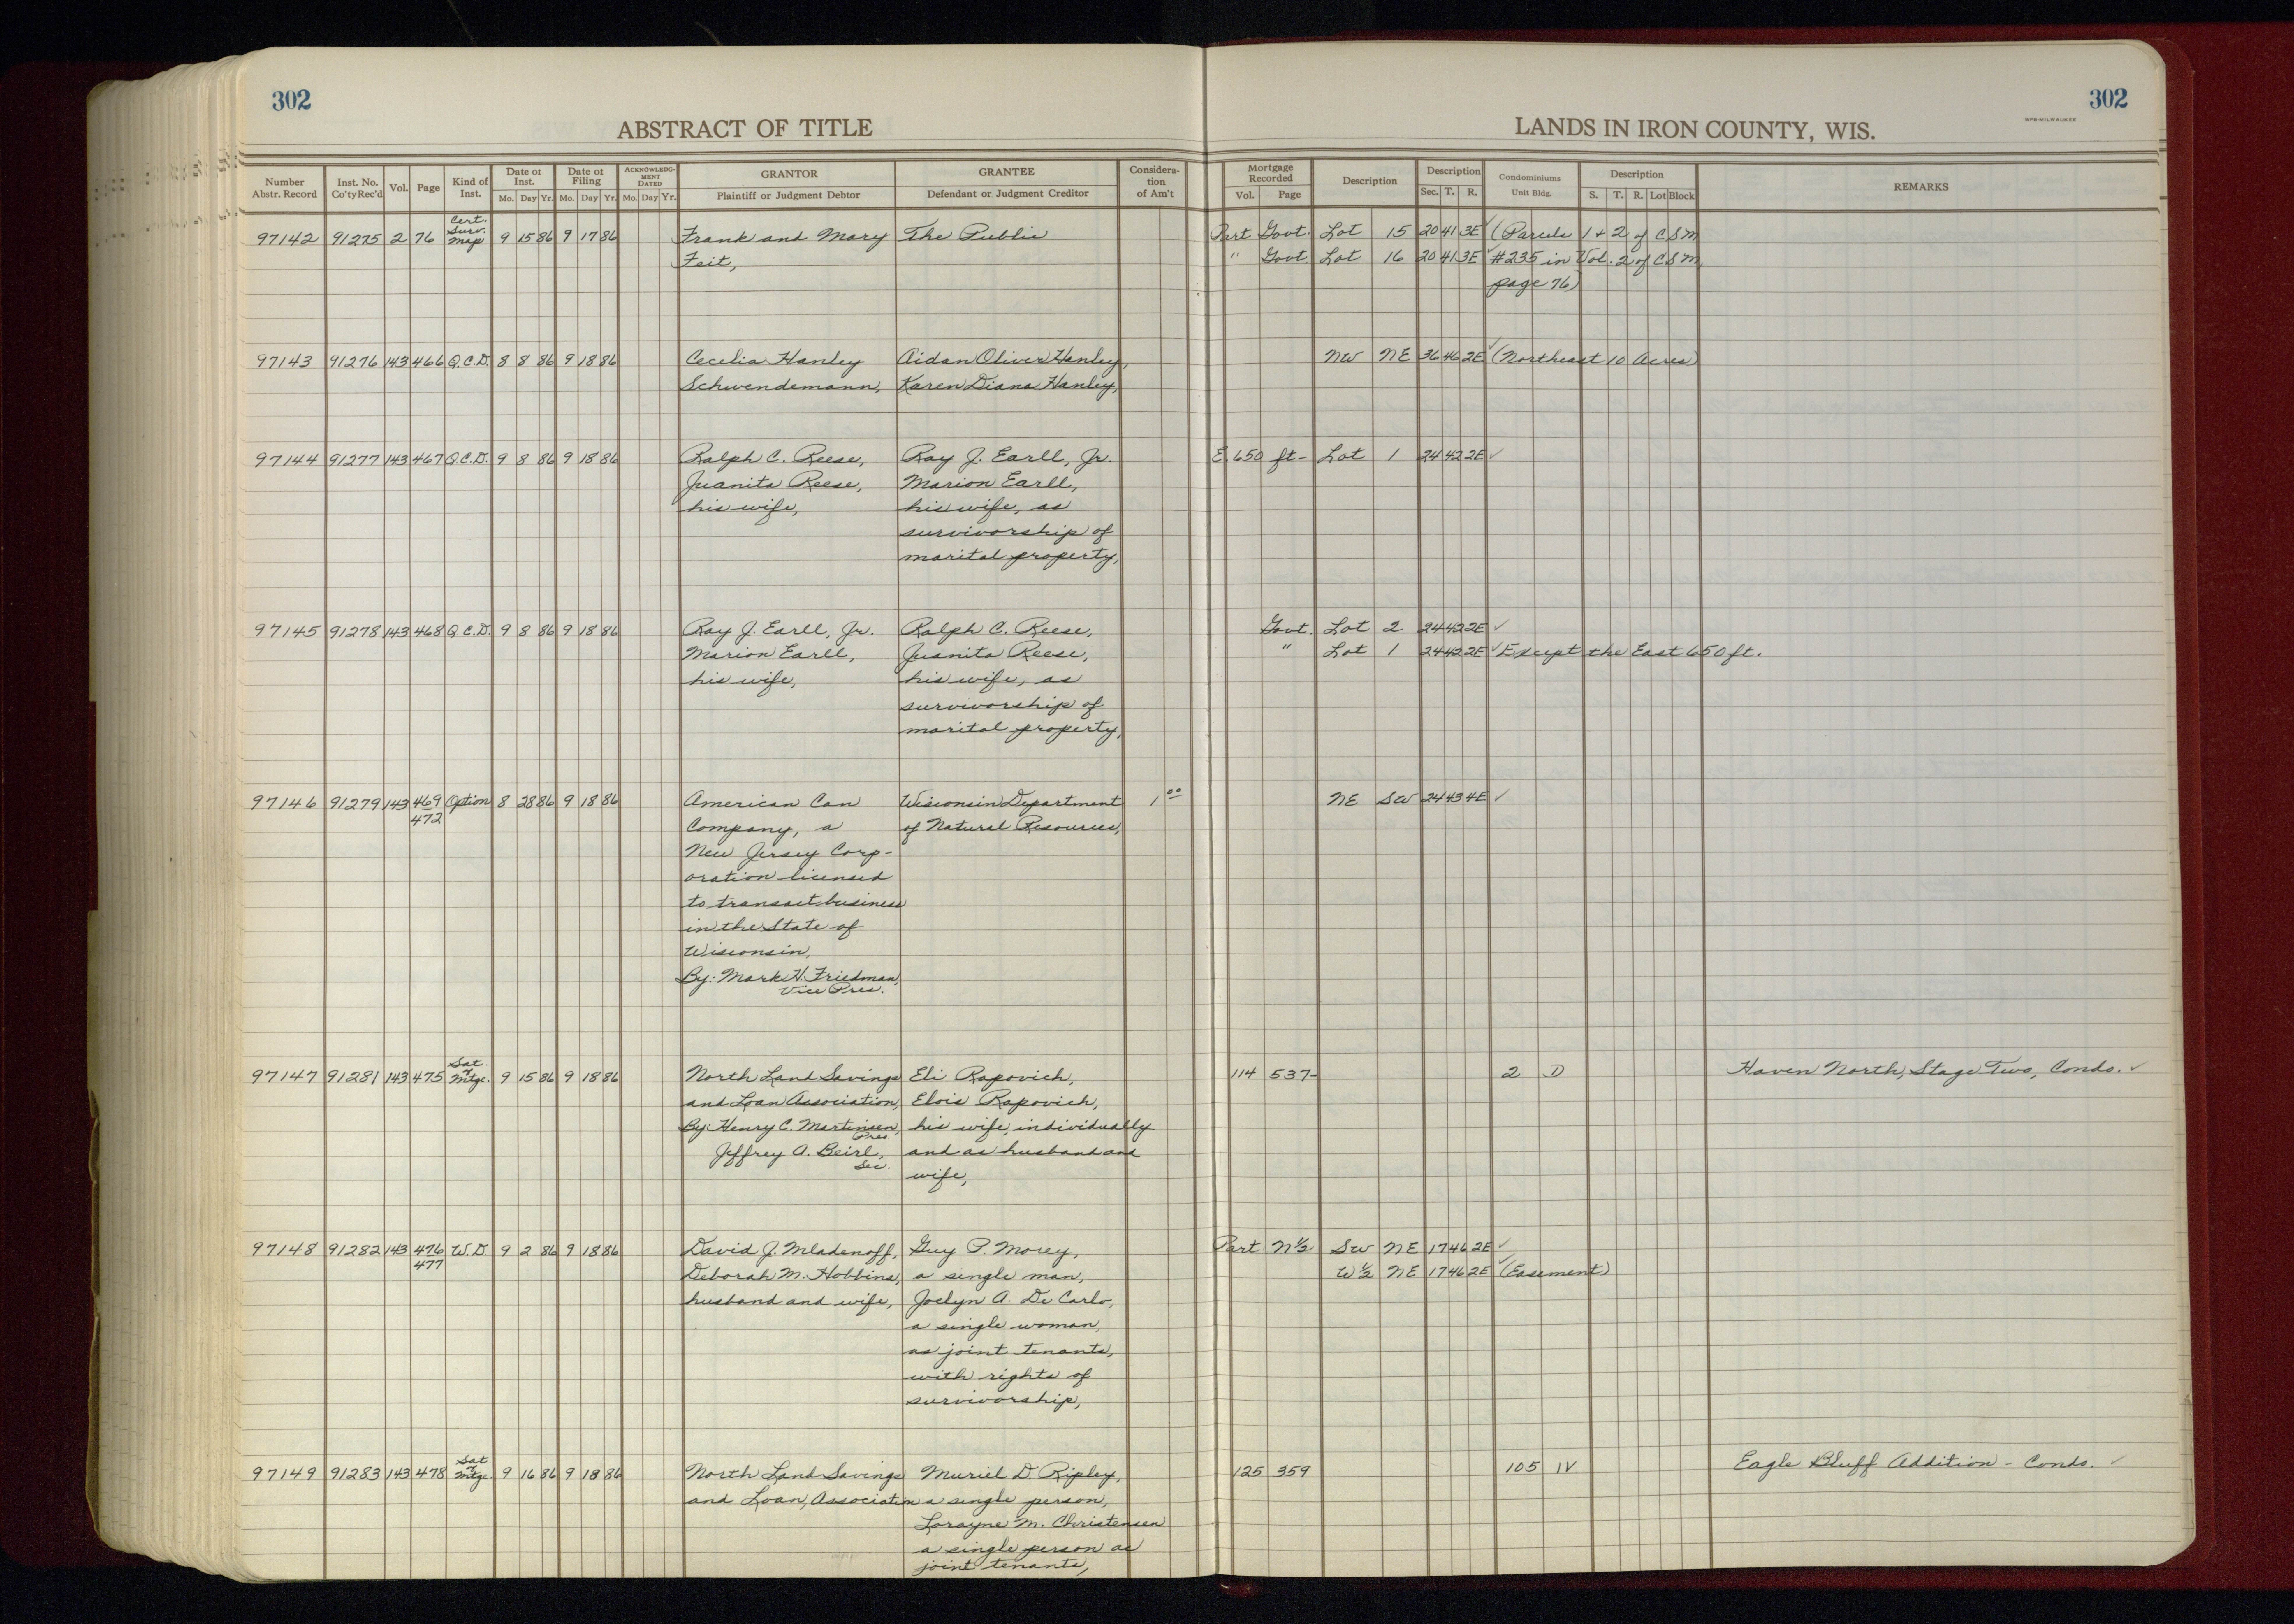 302
302
ABSTRACT OF TITLE
LANDS IN IRON COUNTY, WIS.
WPB-MILWAUKEE
Number Abstr. Record | Inst. No. Co'ty Rec'd | Vol. | Page | Kind of Inst. | Date of Inst. Mo. Day Yr. | Date of Filing Mo. Day Yr. | ACKNOWLEDGMENT DATED Mo. Day Yr. | GRANTOR Plaintiff or Judgment Debtor | GRANTEE Defendant or Judgment Creditor | Consideration of Am't | Mortgage Recorded Vol. Page | Description | Description Sec. T. R. | Condominiums Unit Bldg. | Description S. T. R. Lot Block | REMARKS
Cert. Surv.
97142 91275 2 76 Map 9 15 86 9 17 86 Frank and Mary The Public Part Govt. Lot 15 20 41 3E ✓ (Parcels 1 + 2 of C S M
Feit, " Govt. Lot 16 20 41 3E ✓ #235 in Vol. 2 of C S M,
page 76)
97143 91276 143 466 Q.C.D. 8 8 86 9 18 86 Cecelia Hanley Aidan Oliver Hanley, NW NE 36 46 2E ✓ (Northeast 10 Acres)
Schwendemann, Karen Diana Hanley,
97144 91277 143 467 Q.C.D. 9 8 86 9 18 86 Ralph C. Reese, Ray J. Earll, Jr. E. 650 ft- Lot 1 24 42 2E ✓
Juanita Reese, Marion Earll,
his wife, his wife, as
survivorship of
marital property,
97145 91278 143 468 Q.C.D. 9 8 86 9 18 86 Ray J. Earll, Jr. Ralph C. Reese, Govt. Lot 2 24 42 2E ✓
Marion Earll, Juanita Reese, " Lot 1 24 42 2E ✓ Except the East 650 ft.
his wife, his wife, as
survivorship of
marital property,
97146 91279 143 469 Option 8 28 86 9 18 86 American Can Wisconsin Department 1 00 NE SW 24 43 4E ✓
472 Company, a of Natural Resources,
New Jersey Corp-
oration licensed
to transact business
in the State of
Wisconsin,
By: Mark H. Friedman,
Vice Pres.
Sat. of
97147 91281 143 475 Mtge. 9 15 86 9 18 86 North Land Savings Eli Rapovich, 114 537- 2 D Haven North, Stage Two, Condo. ✓
and Loan Association, Elois Rapovich,
By: Henry C. Martinsen, his wife, individually
Pres
Jeffrey A. Beirl, and as husband and
Sec. wife,
97148 91282 143 476 W.D. 9 2 86 9 18 86 David J. Mladenoff, Guy P. Morey, Part N½ SW NE 17 46 2E ✓
477 Deborah M. Hobbins, a single man, W½ NE 17 46 2E ✓ (Easement)
husband and wife, Joelyn A. De Carlo,
a single woman,
as joint tenants,
with rights of
survivorship,
Sat of
97149 91283 143 478 Mtge. 9 16 86 9 18 86 North Land Savings Muriel D. Ripley, 125 359 105 IV Eagle Bluff Addition - Condo. ✓
and Loan Association a single person,
Lorayne M. Christensen
a single person as
joint tenants,